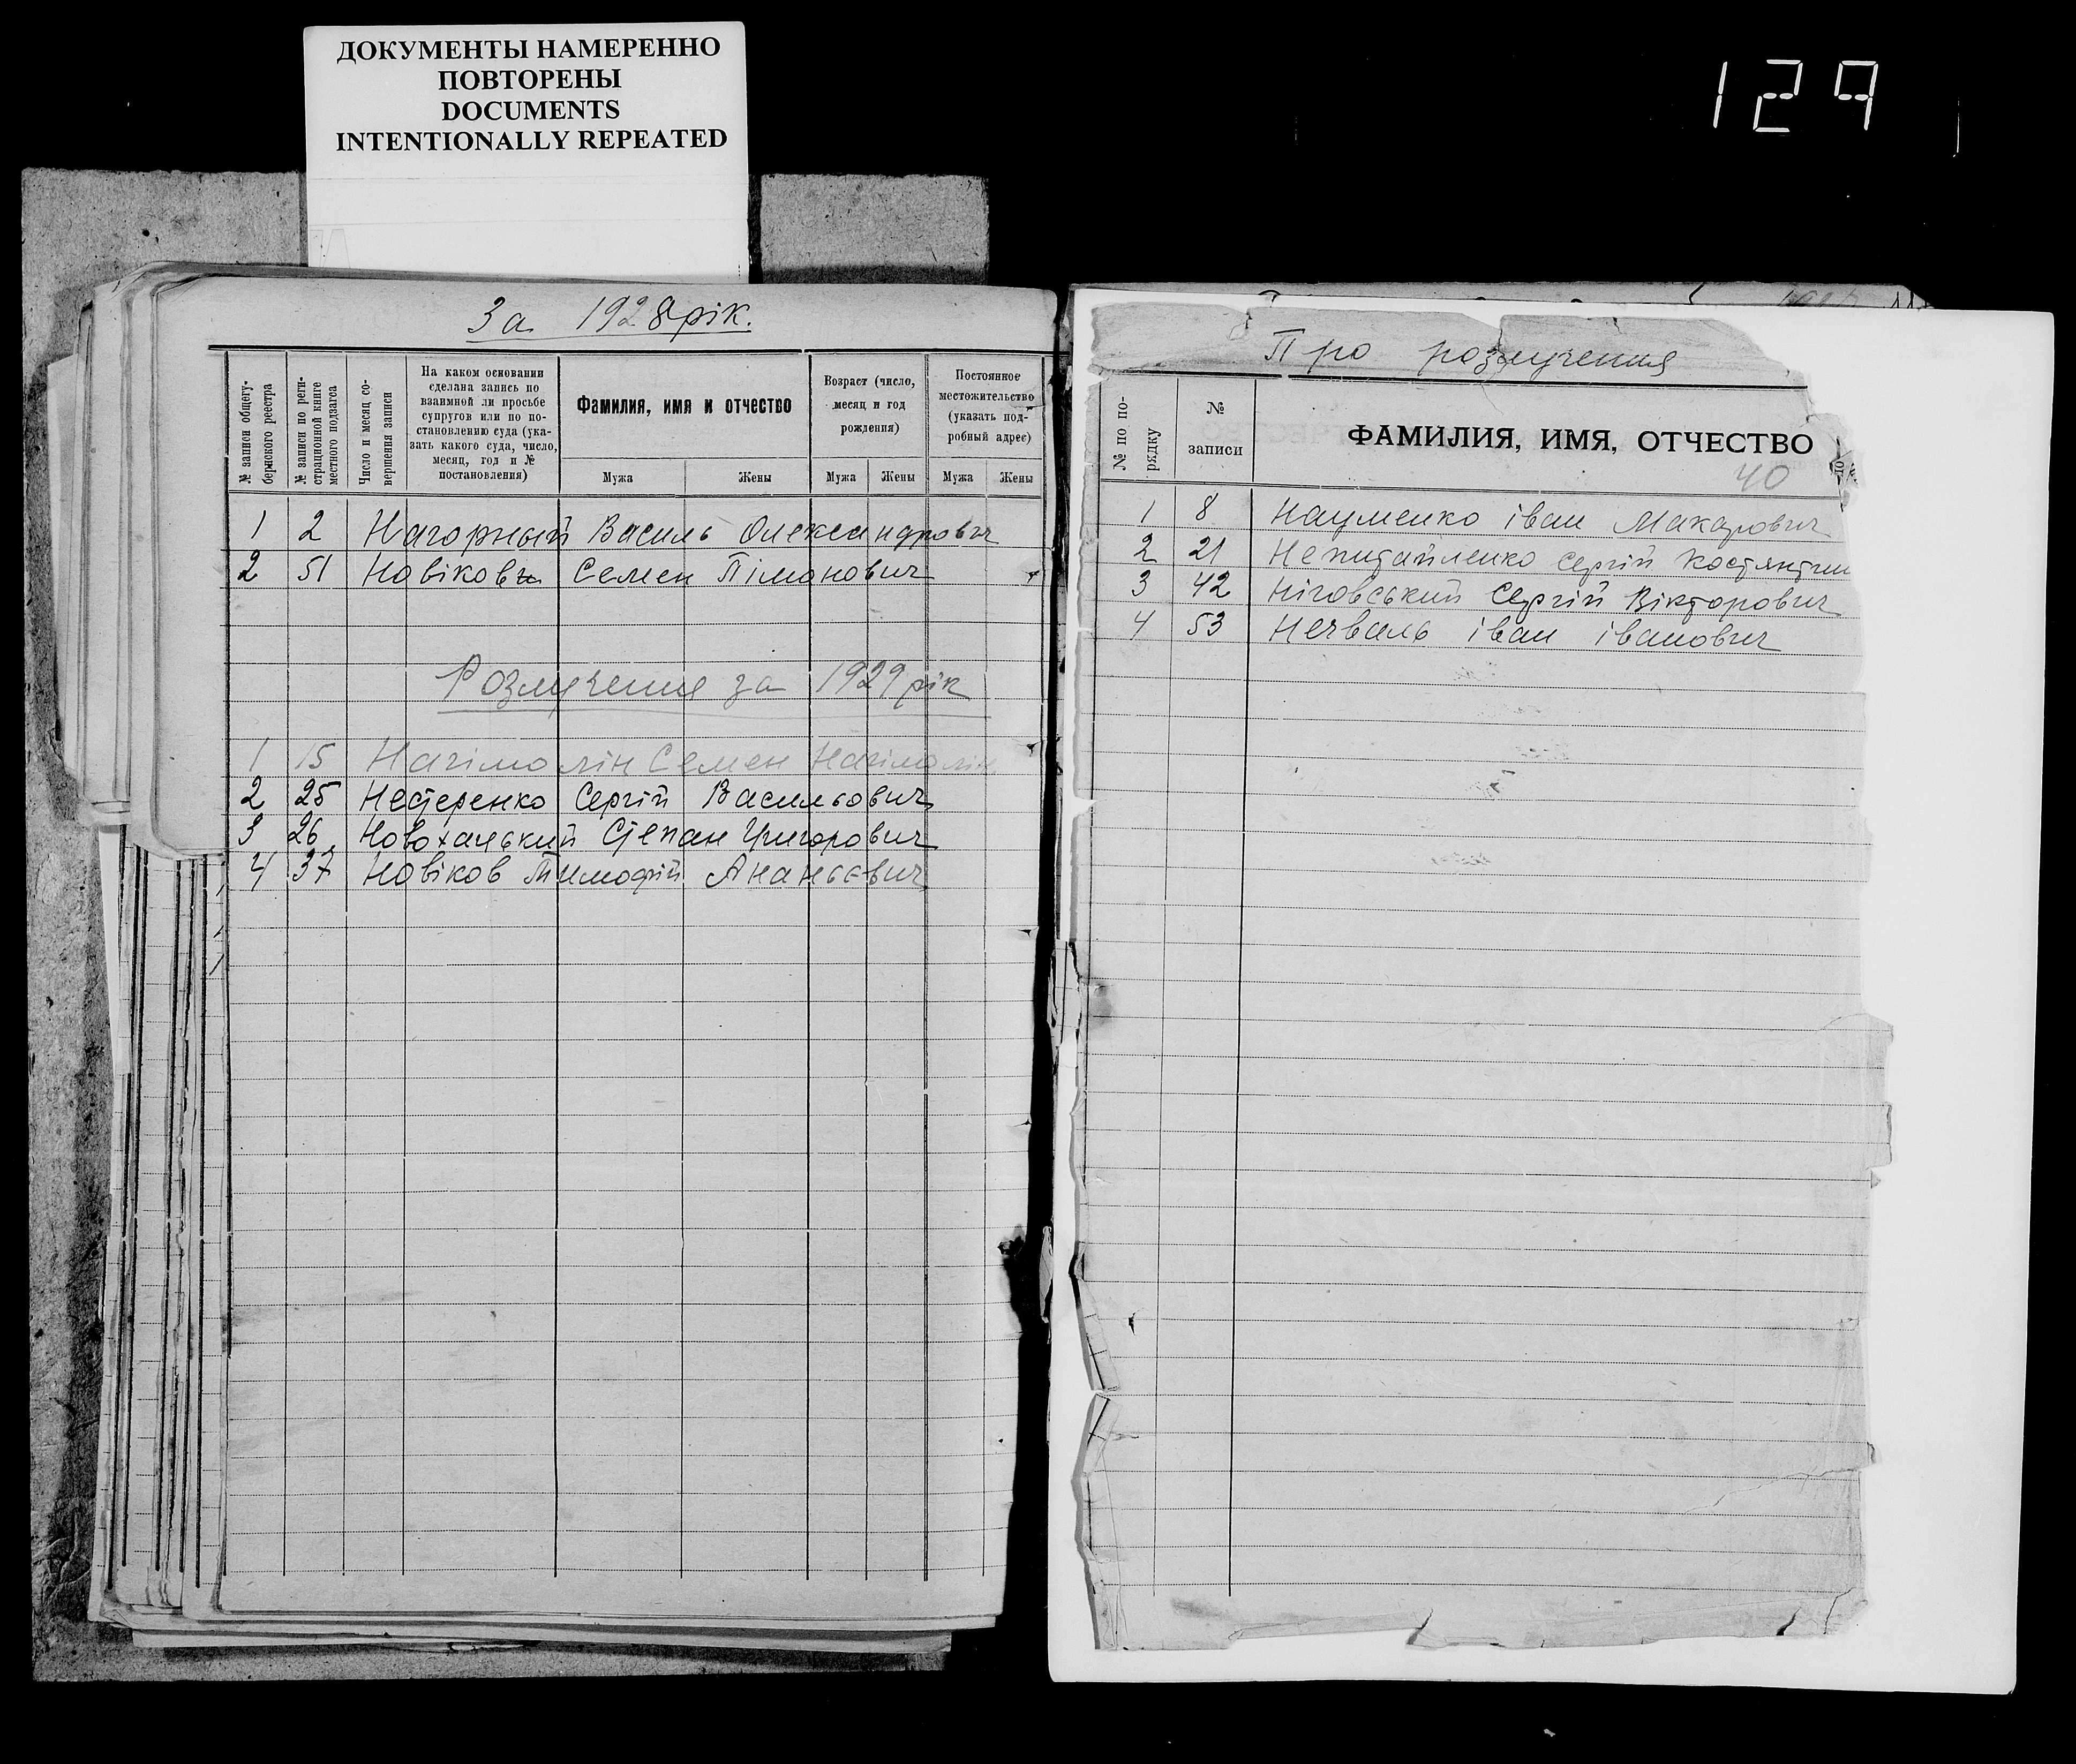 ДОКУМЕНТЫ НАМЕРЕННО
ПОВТОРЕНЫ
DOCUMENTS
INTENTIONALLY REPEATED
129
За 1928 рік.
№ записи общегу-
бернского реестра
№ записи по реги-
страционной книге
местного подзагса
Число и месяц со-
вершения записи
На каком основании
сделана запись по
взаимной ли просьбе
супругов или по по-
становлению суда (ука-
зать какого суда, число,
месяц, год и №
постановления)
Фамилия, имя и отчество
Мужа Жены
Возраст (число,
месяц и год
рождения)
Мужа Жены
Постоянное
местожительство
(указать под-
робный адрес)
Мужа Жены
1 2 Нагорный Василь Олександрович
2 51 Новіков Семен Пімонович
Розлучення за 1929 рік
1 15 Нагімолін Семен Нагімолін
2 25 Нестеренко Сергій Васильович
3 26 Новохацький Степан Григорович
4 37 Новіков Тимофій Ананьєвич
Про розлучения
№ по по-
рядку
№
записи
ФАМИЛИЯ, ИМЯ, ОТЧЕСТВО
40
1 8 Науменко іван Макарович
2 21 Непитайленко Сергій Костянтин
3 42 Ніговський Сергій Вікторович
4 53 Нечваль іван іванович